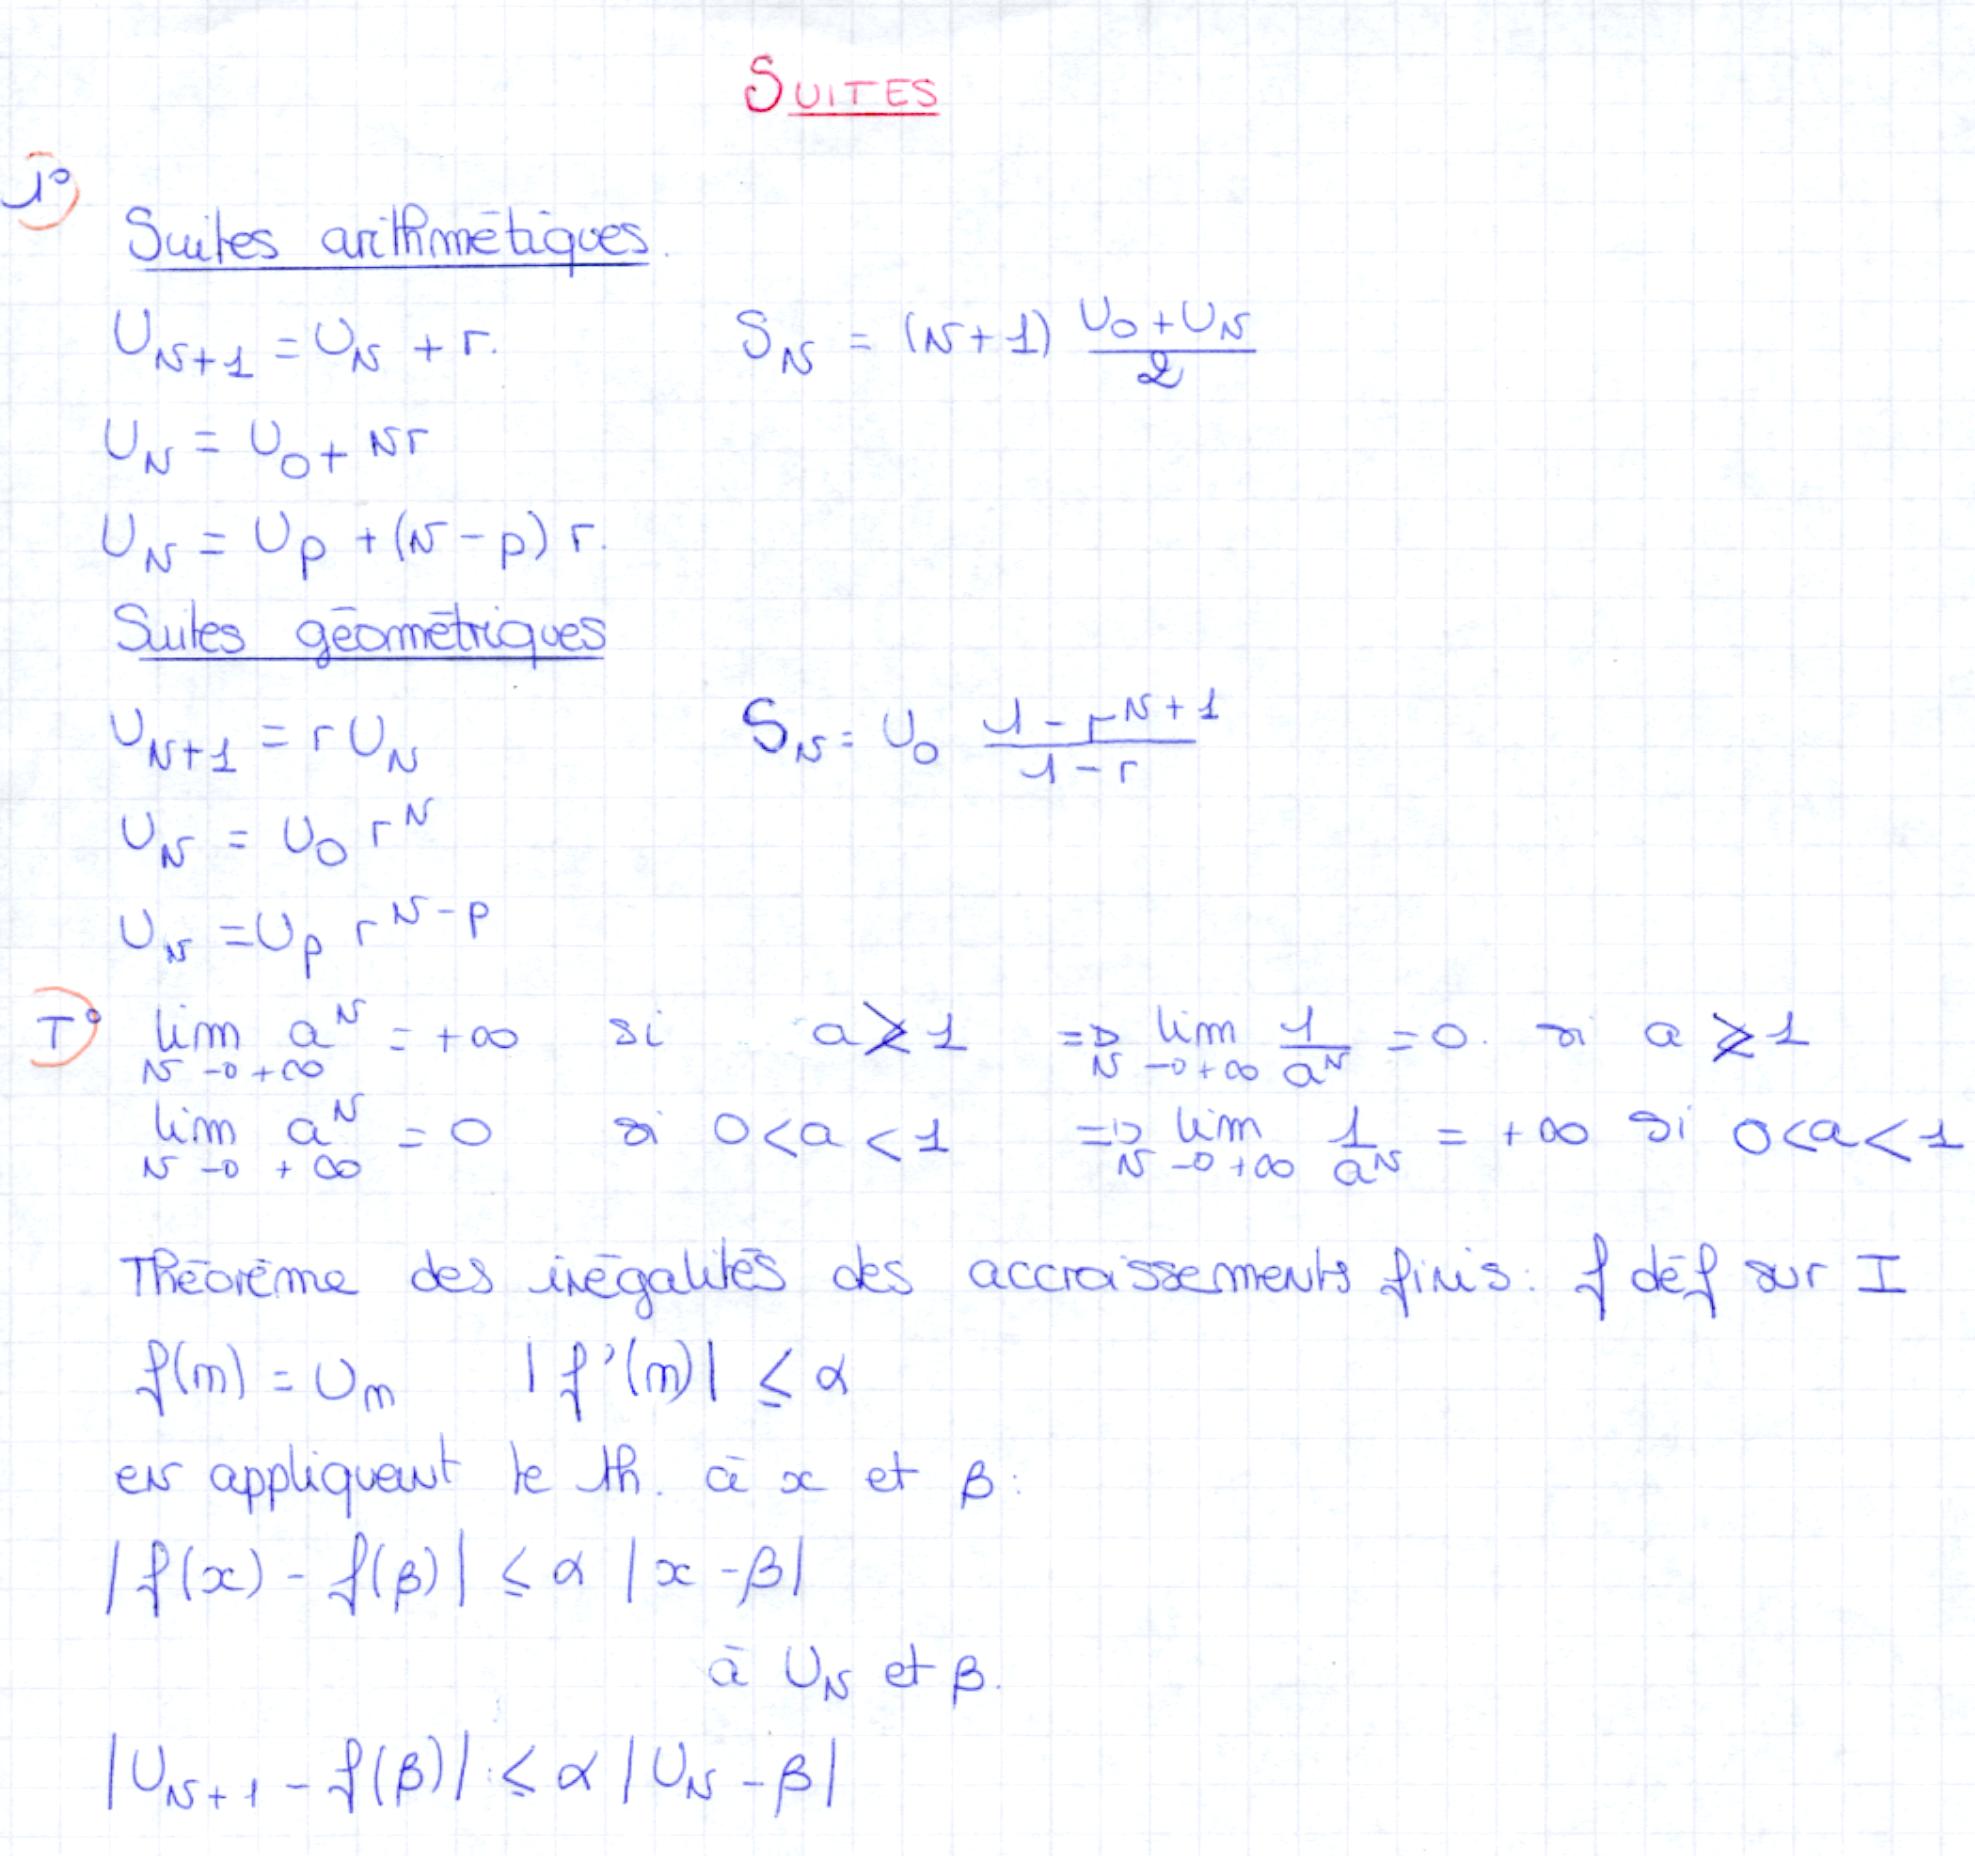 SUITES
1°)
Suites arithmétiques.
U_{N+1} = U_N + r. S_N = (N+1) \frac{U_0 + U_N}{2}
U_N = U_0 + Nr
U_N = U_p + (N-p) r.
Suites géométriques
U_{N+1} = r U_N S_N = U_0 \frac{1 - r^{N+1}}{1 - r}
U_N = U_0 r^N
U_N = U_p r^{N-p}
I°) \lim_{N→+∞} a^N = +∞ si a > 1 ⇒ \lim_{N→+∞} \frac{1}{a^N} = 0. si a > 1
\lim_{N→+∞} a^N = 0 si 0<a<1 ⇒ \lim_{N→+∞} \frac{1}{a^N} = +∞ si 0<a<1
Théorème des inégalités des accroissements finis : f déf sur I
f(m) = U_m |f'(m)| ≤ α
en appliquant le th. à x et β :
|f(x) - f(β)| ≤ α |x - β|
à U_N et β.
|U_{N+1} - f(β)| ≤ α |U_N - β|